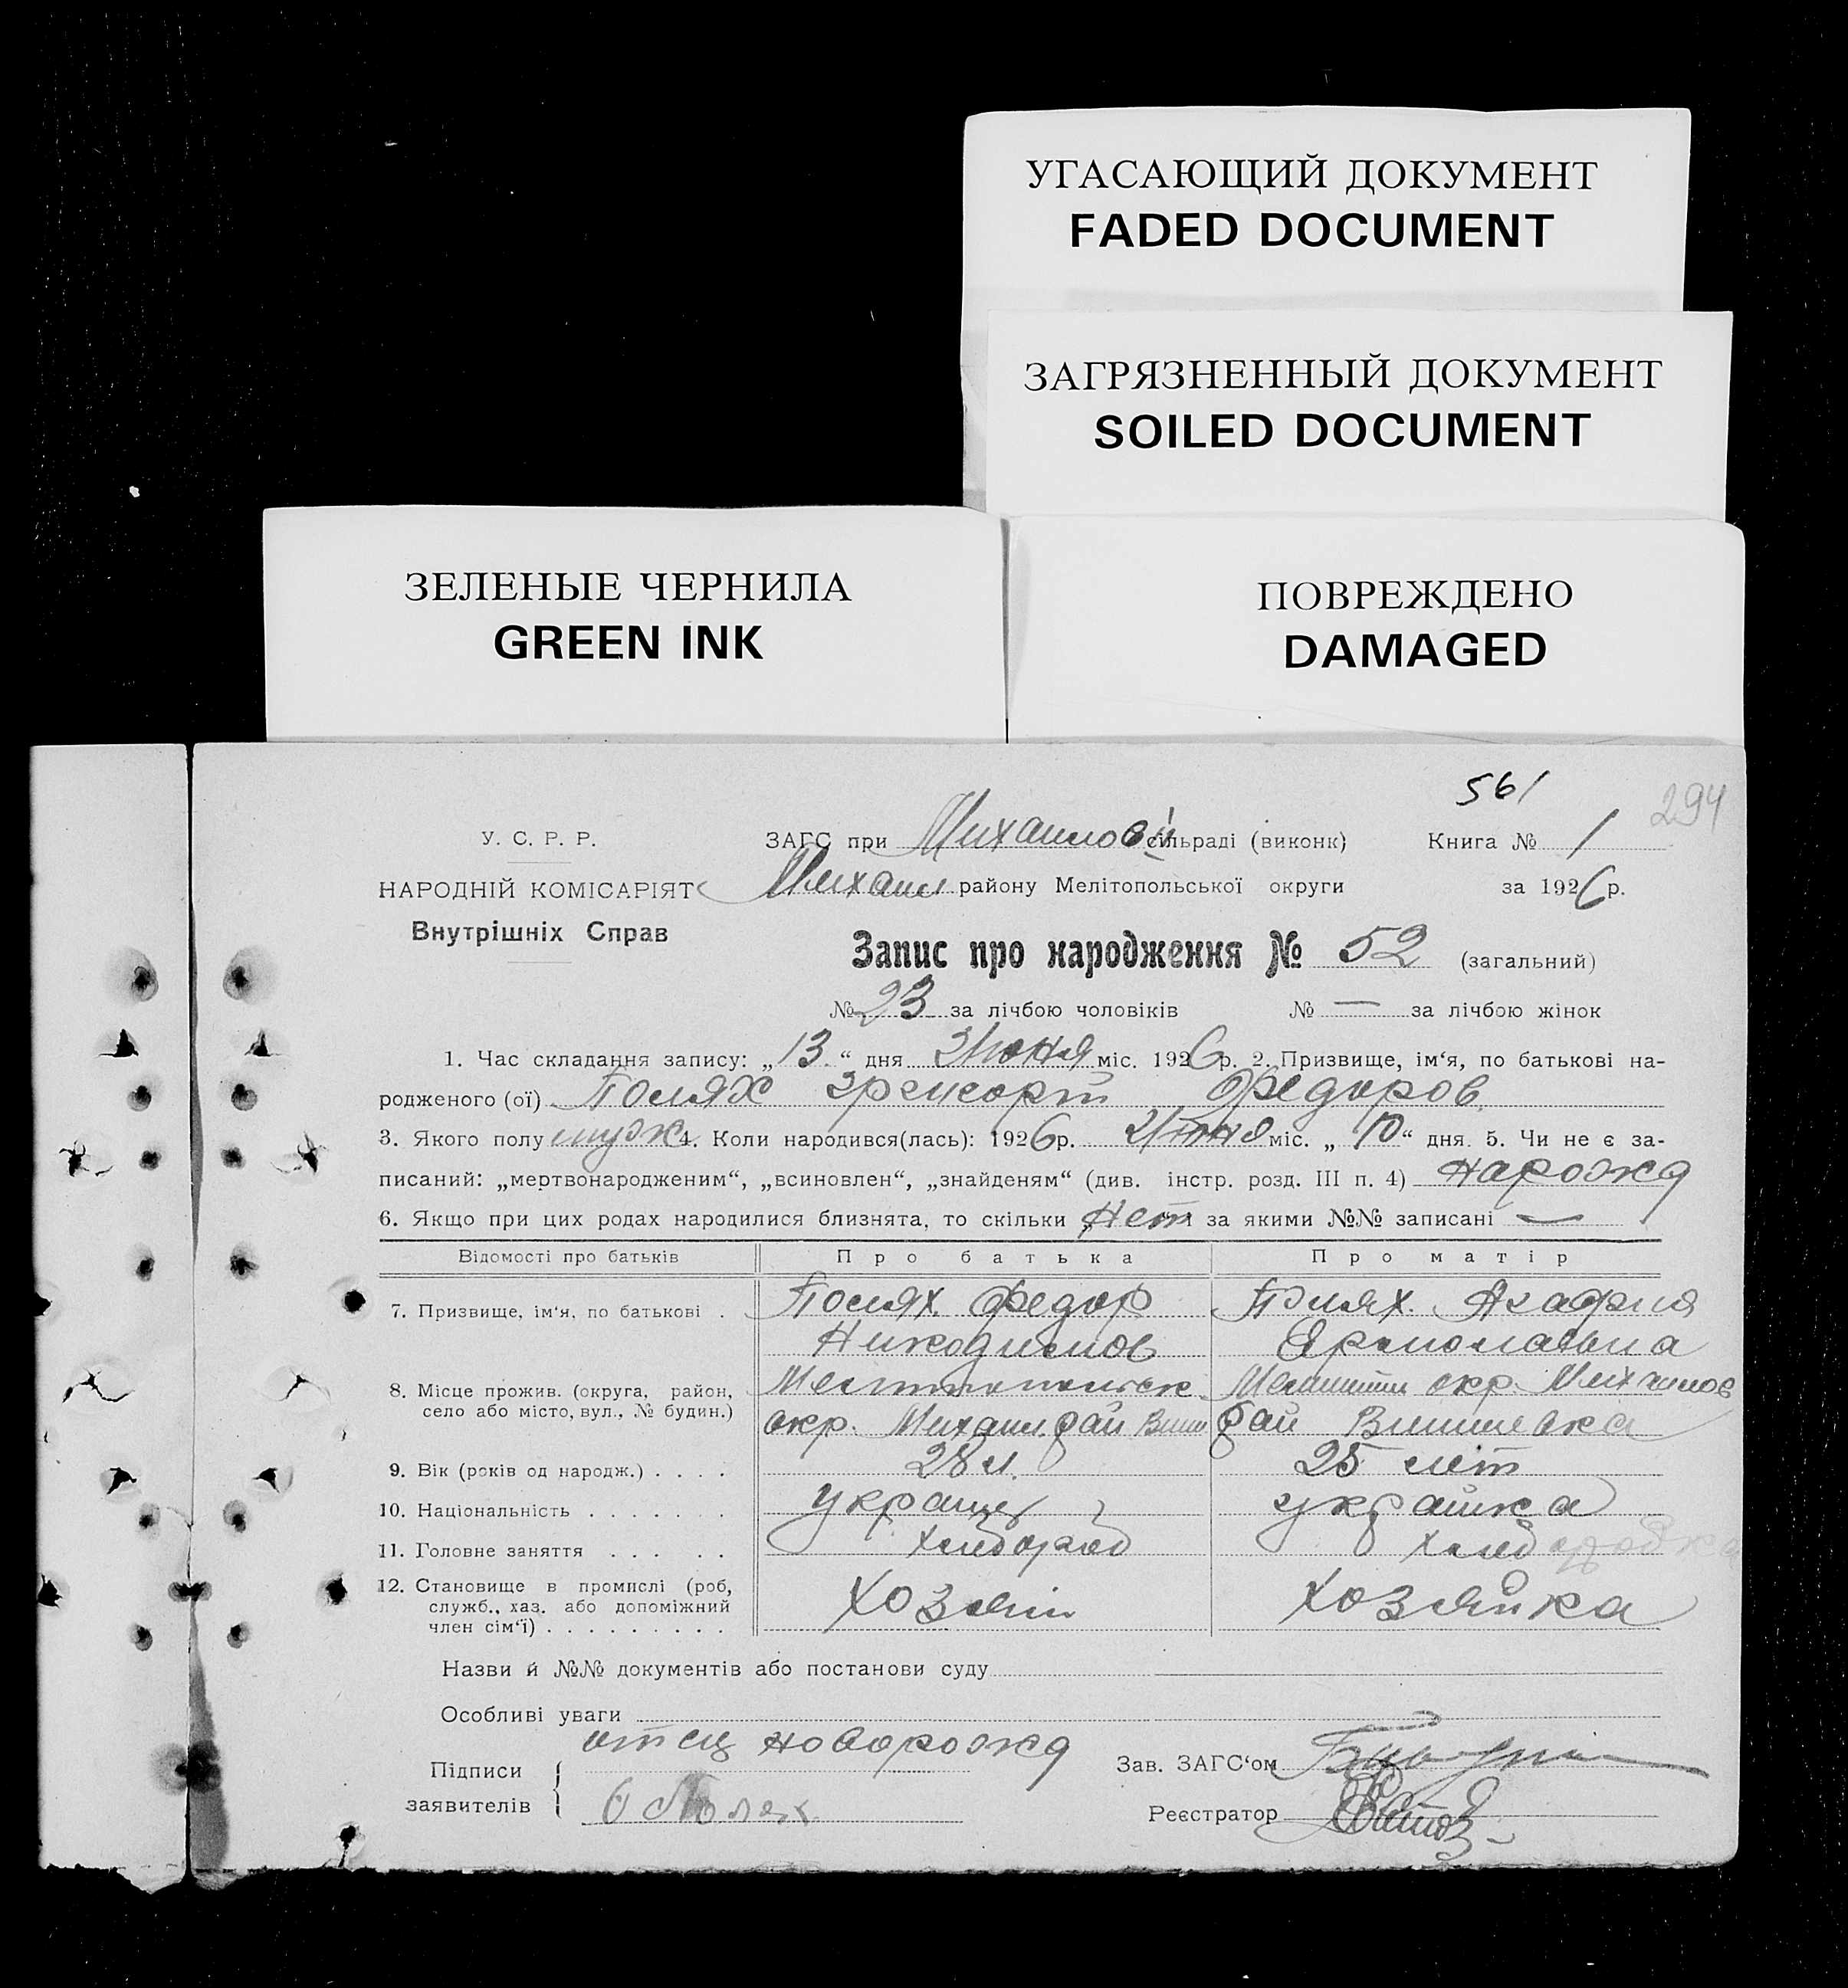 УГАСАЮЩИЙ ДОКУМЕНТ
FADED DOCUMENT
ЗАГРЯЗНЕННЫЙ ДОКУМЕНТ
SOILED DOCUMENT
ЗЕЛЕНЫЕ ЧЕРНИЛА
GREEN INK
ПОВРЕЖДЕНО
DAMAGED
561 294
У. С. Р. Р. ЗАГС при Михайлов сільраді (виконк) Книга № 1
НАРОДНІЙ КОМІСАРІЯТ Михайл району Мелітопольської округи за 1926 р.
Внутрішніх Справ
Запис про народження № 52 (загальний)
№ 23 за лічбою чоловіків № — за лічбою жінок
1. Час складання запису: „13“ дня Июня міс. 1926 р. 2. Призвище, ім‘я, по батькові на-
родженого (ої) Полях Федоров
3. Якого полу муж 4. Коли народився(лась): 1926 р. Июня міс. „10“ дня. 5. Чи не є за-
писаний: „мертвонародженим“, „всиновлен“, „знайденям“ (див. інстр. розд. III п. 4) нарожд
6. Якщо при цих родах народилися близнята, то скільки „Нет“ за якими №№ записані —
Відомості про батьків Про батька Про матір
7. Призвище, ім‘я, по батькові . Полях Федор Полях Агафия
Никодимов Ермолаевна
8. Місце прожив. (округа, район, Мелитопольск. окр. Михайлов
село або місто, вул., № будин.) окр. Михайл. рай Виш рай Вишневка
9. Вік (років од народж.) . . . . 28 л. 25 лет
10. Національність . . . . . . . украинец украинка
11. Головне заняття . . . . . хлебороб хлеборобка
12. Становище в промислі (роб, хозяин хозяйка
служб., хаз. або допоміжний
член сім‘ї) . . . . . . . . .
Назви й №№ документів або постанови суду
Особливі уваги
отец новорожд
Підписи Зав. ЗАГС‘ом
заявителів Полях Реєстратор